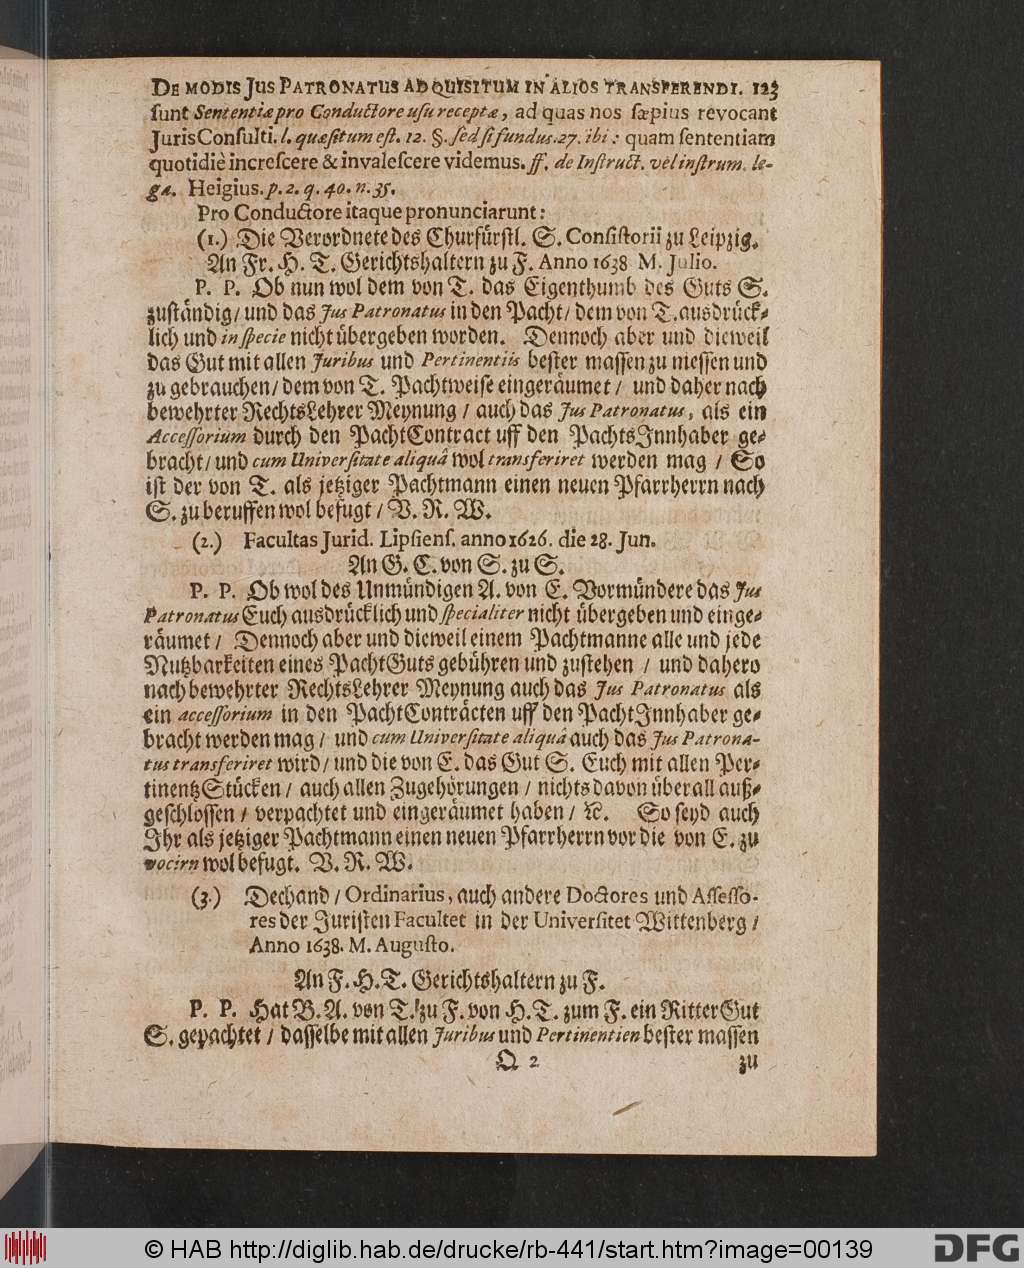 DE MODIS JUS PATRONATUS ADQUISITUM IN ALIOS TRANSFERENDI. 123
ſunt Sententiæ pro Conductore uſu receptæ, ad quas nos ſæpius revocant
JurisConſulti. l. quæſitum eſt. 12. §. ſed ſi fundus. 27. ibi: quam ſententiam
quotidiè increſcere & invaleſcere videmus. ff. de Inſtruct. vel inſtrum. le-
ga. Heigius. p. 2. q. 40. n. 35.
Pro Conductore itaque pronunciarunt:
(1.) Die Verordnete des Churfürſtl. S. Conſiſtorii zu Leipzig.
An Fr. H. T. Gerichtshaltern zu F. Anno 1638 M. Julio.
P. P. Ob nun wol dem von T. das Eigenthumb des Guts S.
zuſtändig/ und das Jus Patronatus in den Pacht/ dem von T. ausdrück-
lich und in ſpecie nicht übergeben worden. Dennoch aber und dieweil
das Gut mit allen Juribus und Pertinentiis beſter maſſen zu nieſſen und
zu gebrauchen/ dem von T. Pachtweiſe eingeräumet/ und daher nach
bewehrter RechtsLehrer Meynung/ auch das Jus Patronatus, als ein
Acceſſorium durch den PachtContract uff den PachtsInnhaber ge-
bracht/ und cum Univerſitate aliquâ wol transferiret werden mag/ So
iſt der von T. als jetziger Pachtmann einen neuen Pfarrherrn nach
S. zu beruffen wol befugt/ V. R. W.
(2.) Facultas Jurid. Lipſienſ. anno 1626. die 28. Jun.
An G. C. von S. zu S.
P. P. Ob wol des Unmündigen A. von E. Vormündere das Jus
Patronatus Euch ausdrücklich und ſpecialiter nicht übergeben und einge-
räumet/ Dennoch aber und dieweil einem Pachtmanne alle und jede
Nutzbarkeiten eines PachtGuts gebühren und zuſtehen/ und dahero
nach bewehrter RechtsLehrer Meynung auch das Jus Patronatus als
ein acceſſorium in den PachtConträcten uff den PachtInnhaber ge-
bracht werden mag/ und cum Univerſitate aliquâ auch das Jus Patrona-
tus transferiret wird/ und die von E. das Gut S. Euch mit allen Per-
tinentzStücken/ auch allen Zugehörungen/ nichts davon überall auß-
geſchloſſen/ verpachtet und eingeräumet haben/ ꝛc. So ſeyd auch
Ihr als jetziger Pachtmann einen neuen Pfarrherrn vor die von E. zu
vocirn wol befugt. V. R. W.
(3.) Dechand/ Ordinarius, auch andere Doctores und Aſſeſſo-
res der Juriſten Facultet in der Univerſitet Wittenberg/
Anno 1638. M. Auguſto.
An F. H. T. Gerichtshaltern zu F.
P. P. Hat B. A. von T. zu F. von H. T. zum F. ein RitterGut
S. gepachtet/ daſſelbe mit allen Juribus und Pertinentien beſter maſſen
Q 2 zu
© HAB http://diglib.hab.de/drucke/rb-441/start.htm?image=00139
DFG